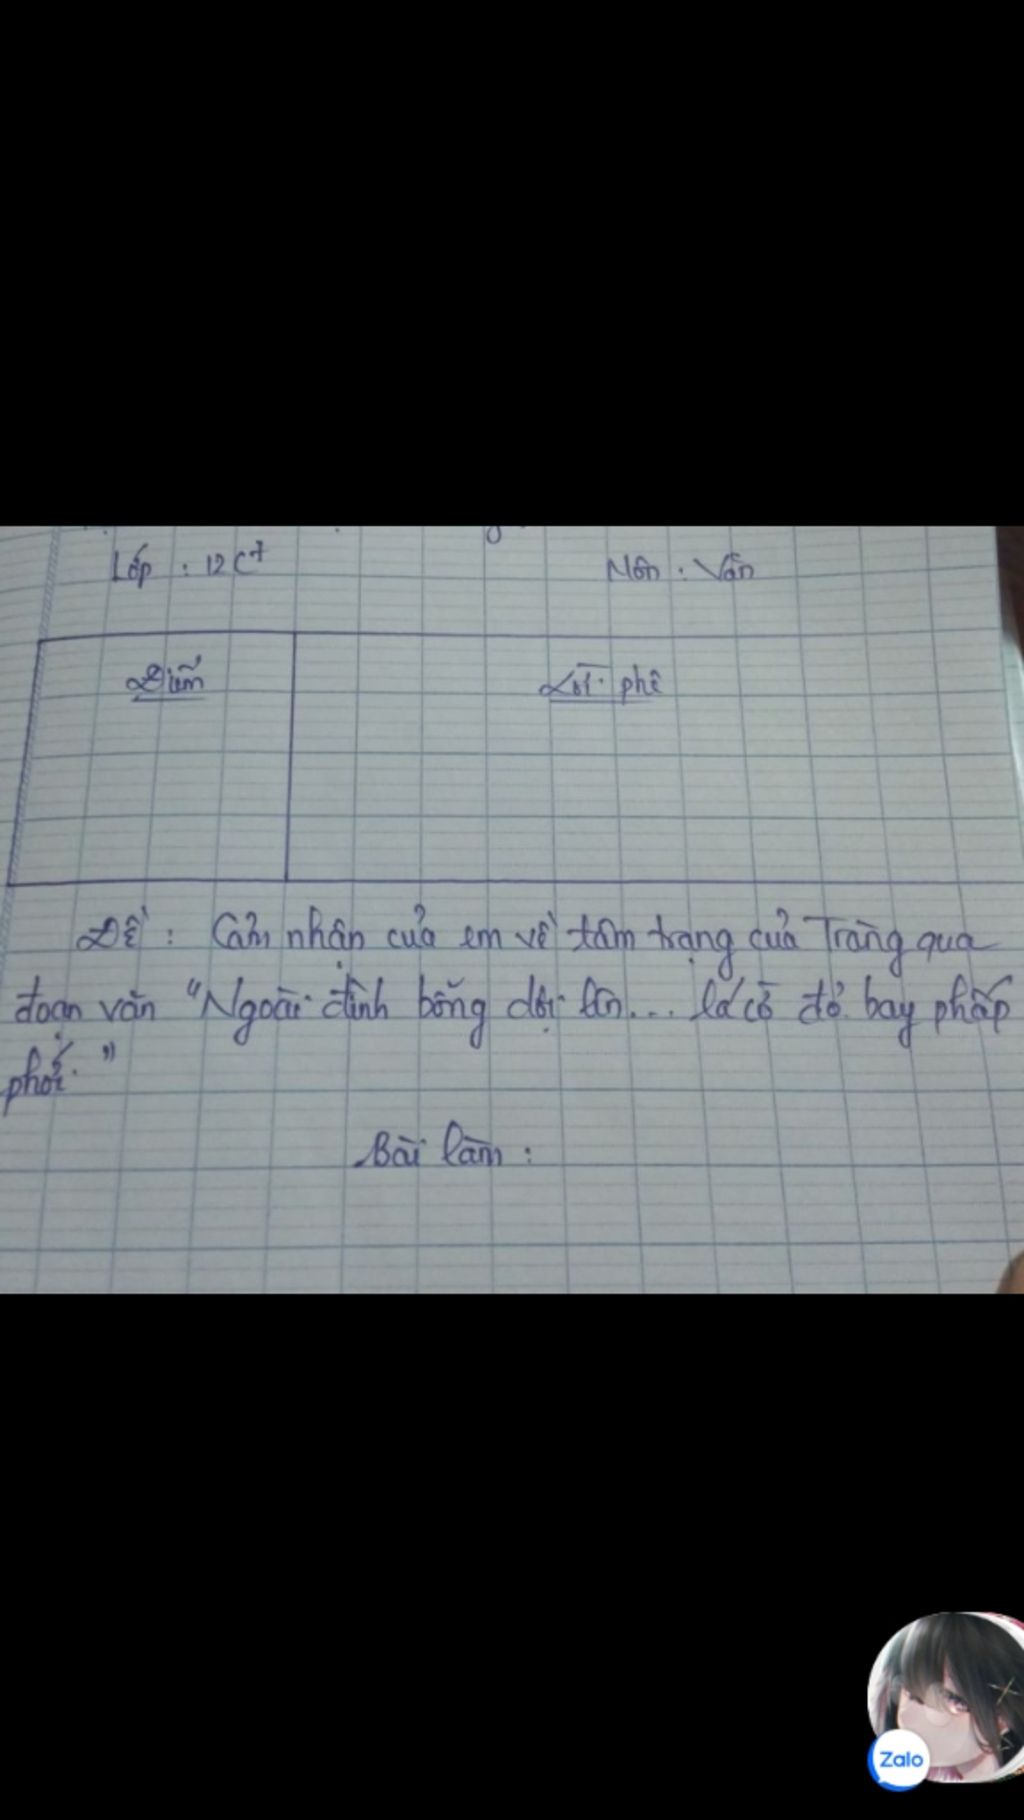 Lớp : 12C7
Môn : Văn
Điểm
Lời phê
Đề : Cảm nhận của em về tâm trạng của Tràng qua
đoạn văn "Ngoài đình bỗng dội lên... lá cờ đỏ bay phấp
phới."
Bài làm :
Zalo